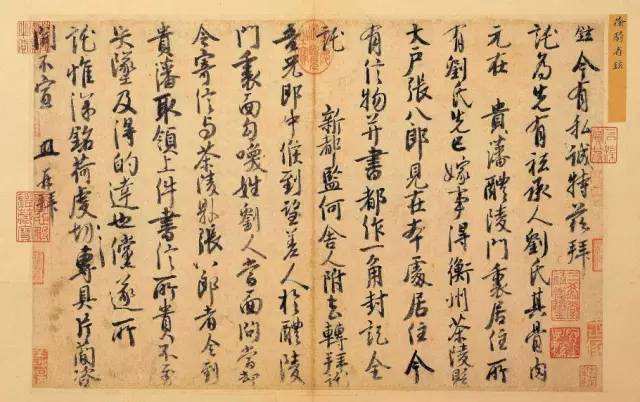 鉉今有私誠特茲拜
託為先有祗承人劉氏其骨肉
元在 貴藩醴陵門裏居住所
有劉氏先已嫁事得衡州茶陵縣
大户張八郎見在本處居住今
有信物并書都作一角封記全
託 新都監何舍人附去轉拜託
吾兄郎中候到望差人於醴陵
門裏面勾喚姓劉人當面問當却
令寄信与茶陵縣張八郎者令到
貴藩取領上件書信所貴不至
失墜及得的達也儻遂所
託惟深銘荷虔切專具片簡咨
聞不宣 鉉再拜